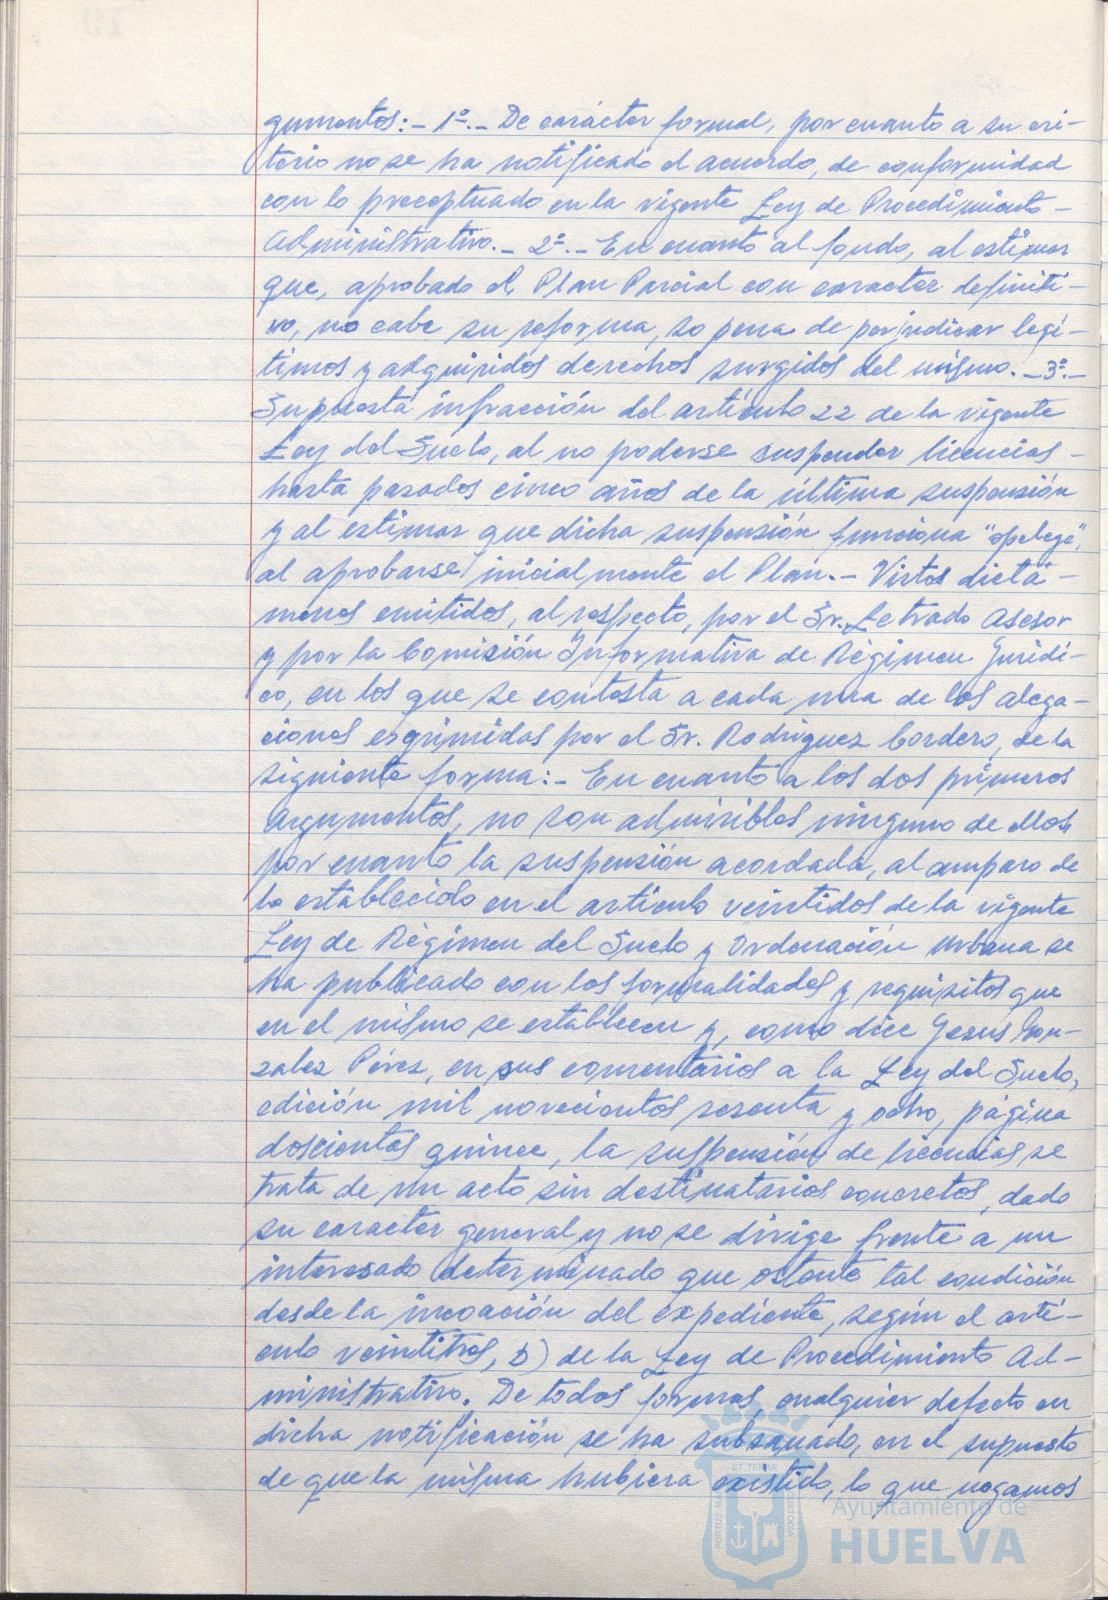 gumentos:- 1º.- De carácter formal, por cuanto a su cri-
terio no se ha notificado el acuerdo, de conformidad
con lo preceptuado en la vigente Ley de Procedimiento-
Administrativo.- 2º.- En cuanto al fondo, al estimar
que, aprobado el Plan Parcial con caracter definiti-
vo, no cabe su reforma, so pena de perjudicar legí-
timos y adquiridos derechos surgidos del mismo.- 3º.-
Supuesta infracción del artículo 22 de la vigente
Ley del Suelo, al no poderse suspender licencias-
hasta pasados cinco años de la última suspensión
y al estimar que dicha suspensión funciona "opelege",
al aprobarse inicialmente el Plan.- Vistos dictá-
menes emitidos, al respecto, por el Sr. Letrado Asesor
y por la Comisión Informativa de Régimen Jurídi-
co, en los que se contesta a cada una de las alega-
ciones esgrimidas por el Sr. Rodríguez Cordero, de la
siguiente forma:- En cuanto a los dos primeros
argumentos, no son admisibles ninguno de ellos,
por cuanto la suspensión acordada, al amparo de
lo establecido en el artículo veintidos de la vigente
Ley de Régimen del Suelo y Ordenación Urbana se
ha publicado con los formalidades y requisitos que
en el mismo se establecen y, como dice Jesus Gon-
zalez Pérez, en sus comentarios a la Ley del Suelo,
edición mil novecientos sesenta y ocho, página
doscientas quince, la suspensión de licencias se
trata de un acto sin destinatarios concretos, dado
su caracter general y no se dirige frente a un
interesado determinado que ostente tal condición
desde la incoación del expediente, según el artí-
culo veintitres, b) de la Ley de Procedimiento Ad-
ministrativo. De todas formas, cualquier defecto en
dicha notificación se ha subsanado, en el supuesto
de que la misma hubiera existido, lo que negamos
ET TERRA
PORTUS MARIS
CUSTODIA
Ayuntamiento de
HUELVA